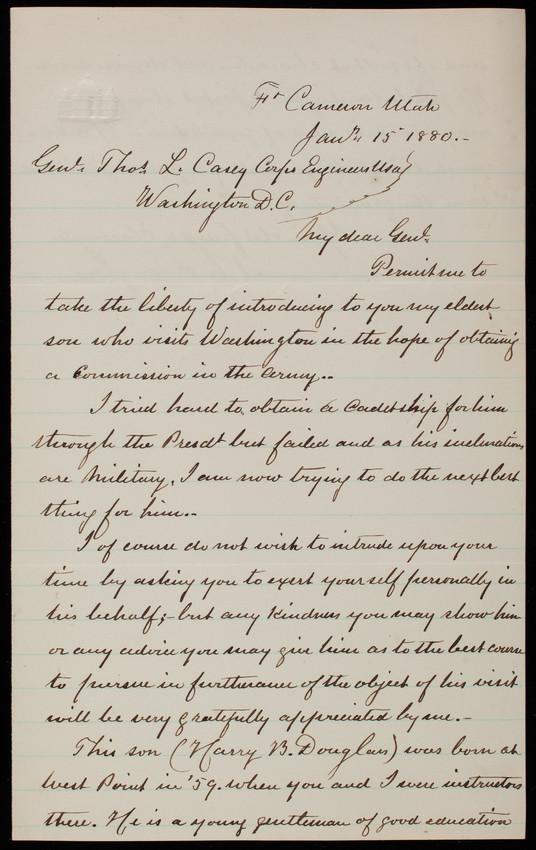 Ft Cameron Utah
Jany 15 1880.-
Genl. Thos. L. Casey Corps Engineers USA
Washington D.C.
My dear Genl.
Permit me to
take the liberty of introducing to you my eldest
son who visits Washington in the hope of obtaining
a Commission in the Army..
I tried hard to obtain a Cadetship for him
through the Presdt but failed and as his inclinations
are Military, I am now trying to do the next best
thing for him.-
I of course do not wish to intrude upon your
time by asking you to exert yourself personally in
his behalf;- but any kindness you may show him
or any advice you may give him as to the best course
to pursue in furtherance of the object of his visit
will be very gratefully appreciated by me.-
This son (Harry B. Douglass) was born at
West Point in '59. when you and I were instructors
there. He is a young gentleman of good education